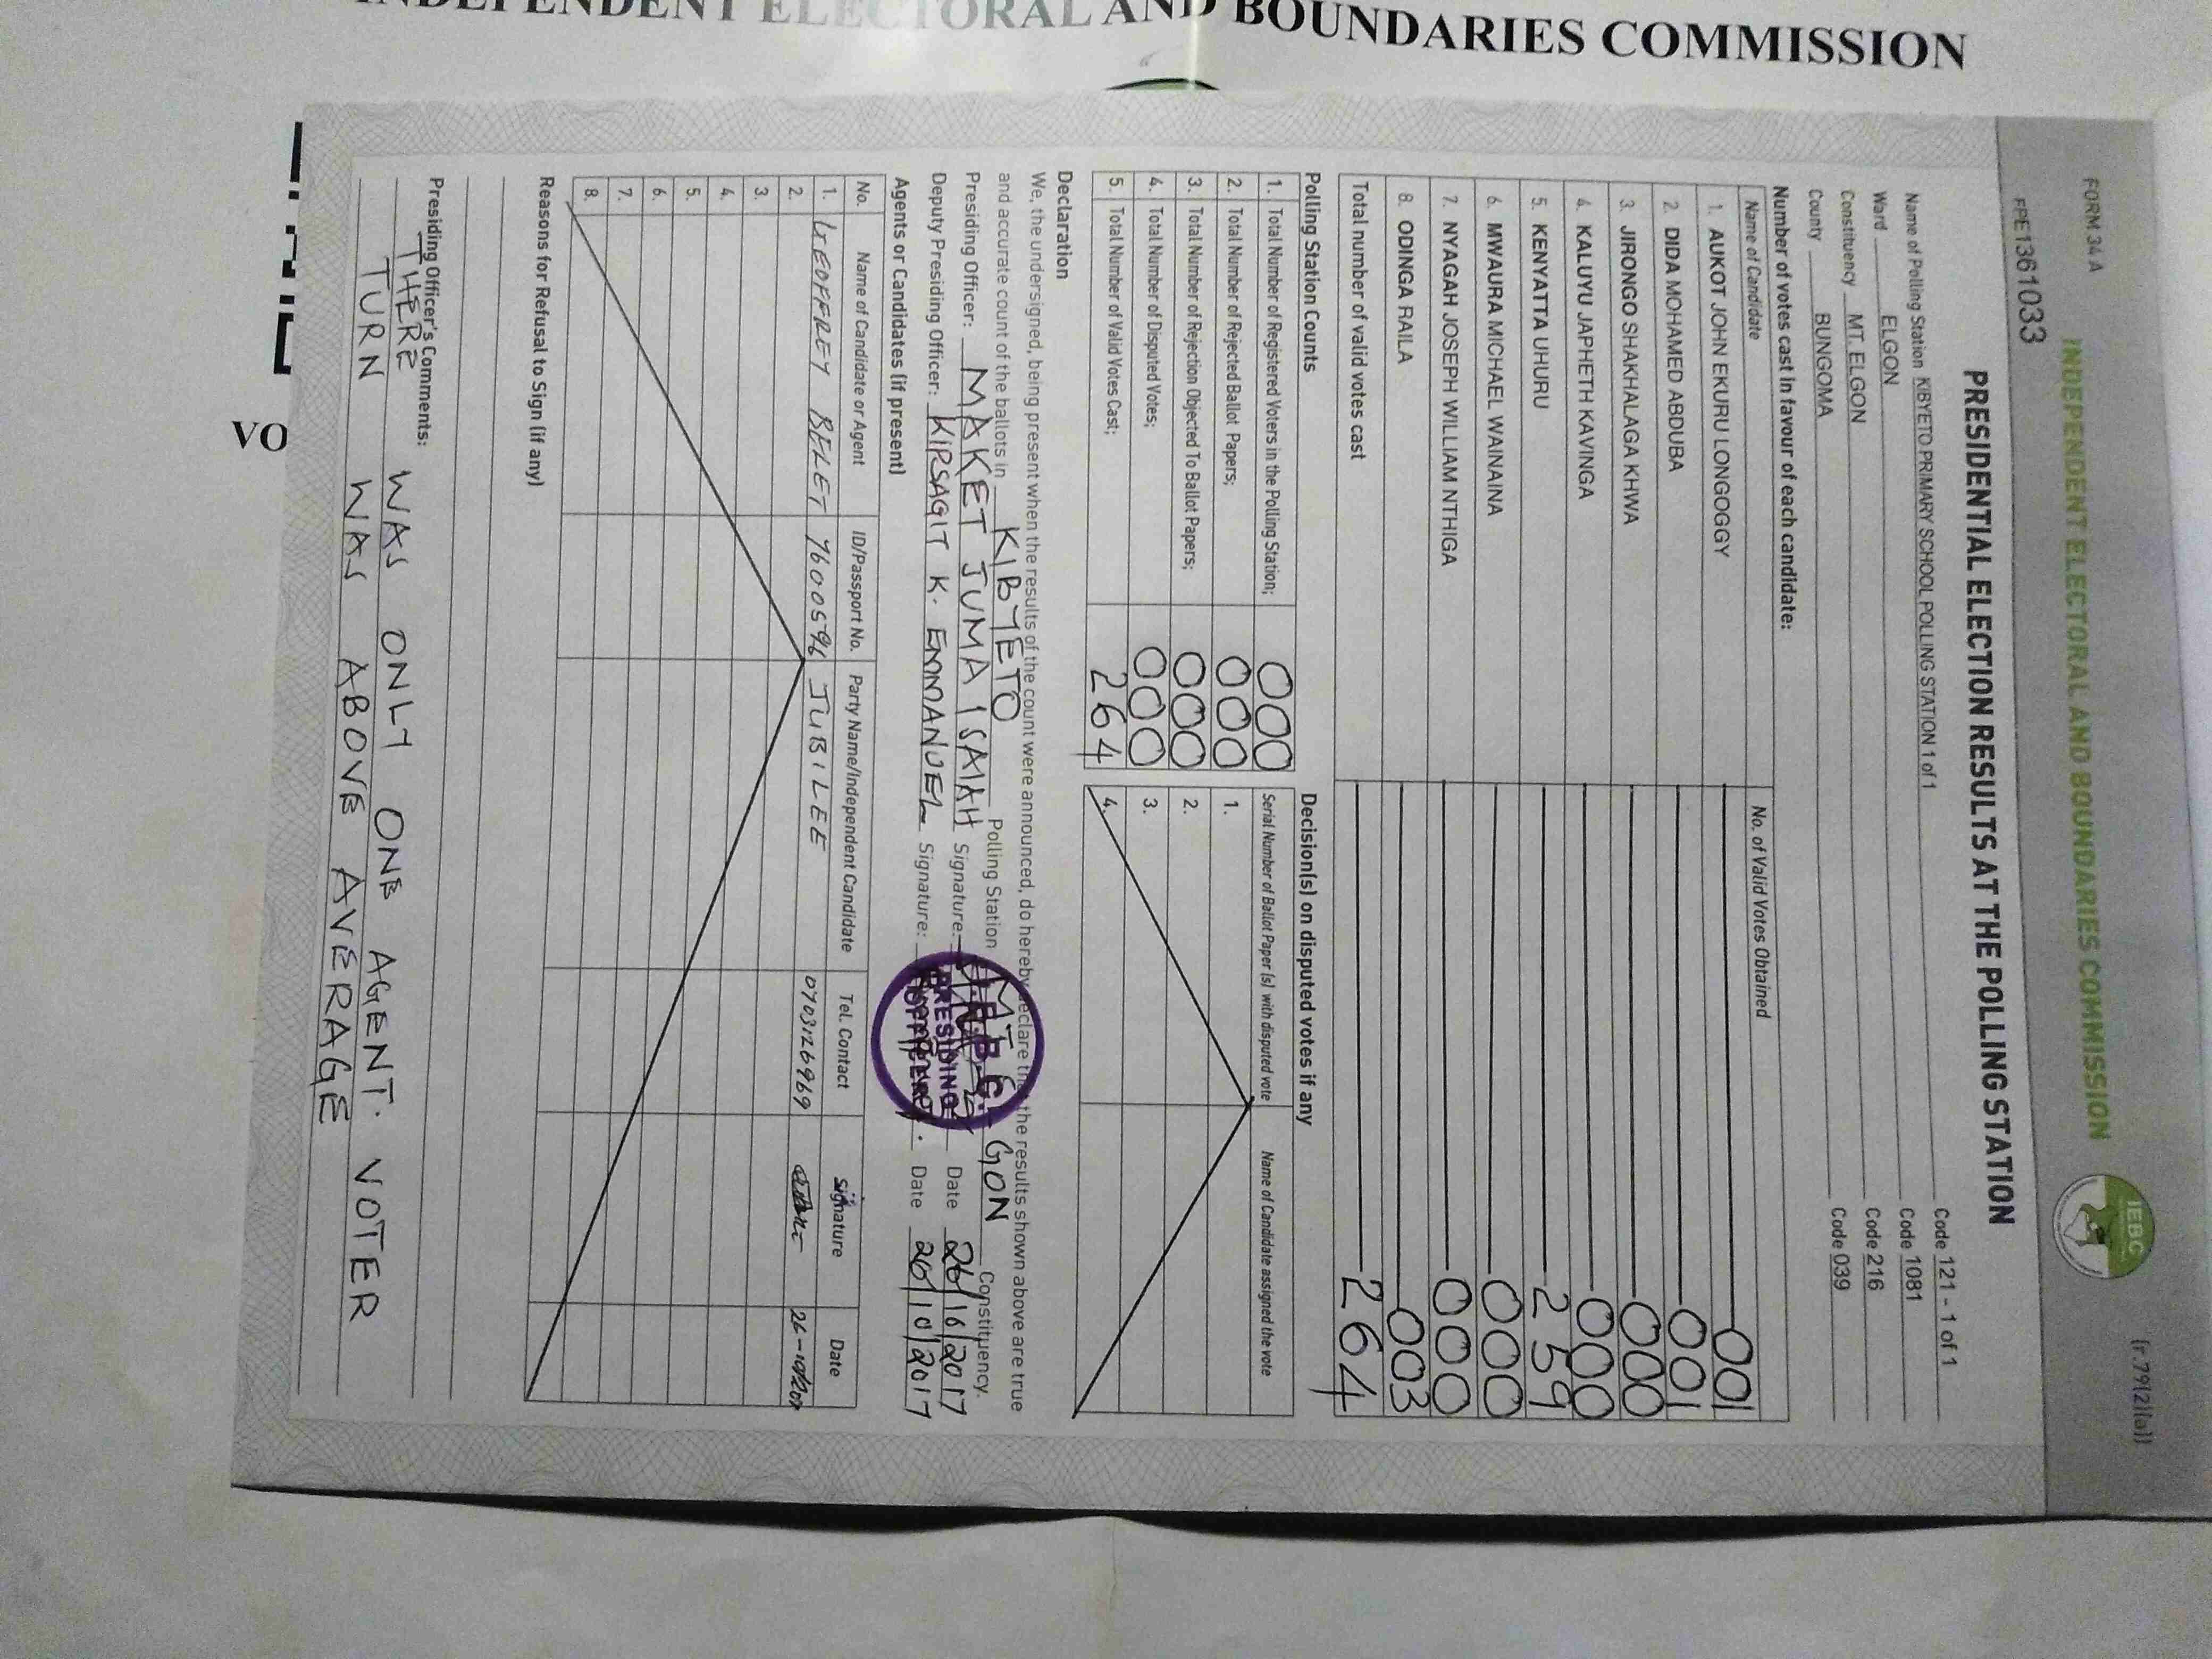 INDEPENDENT ELECTORAL AND BOUNDARIES COMMISSION
VO
FORM 34 A
(r.79(2)(a))
INDEPENDENT ELECTORAL AND BOUNDARIES COMMISSION
IEBC
FPE1361033
PRESIDENTIAL ELECTION RESULTS AT THE POLLING STATION
Name of Polling Station KIBYETO PRIMARY SCHOOL POLLING STATION 1 of 1 Code 121 - 1 of 1
Ward ELGON Code 1081
Constituency MT. ELGON Code 216
County BUNGOMA Code 039
Number of votes cast in favour of each candidate:
Name of Candidate No. of Valid Votes Obtained
1. AUKOT JOHN EKURU LONGOGGY 001
2. DIDA MOHAMED ABDUBA 001
3. JIRONGO SHAKHALAGA KHWA 000
4. KALUYU JAPHETH KAVINGA 000
5. KENYATTA UHURU 259
6. MWAURA MICHAEL WAINAINA 000
7. NYAGAH JOSEPH WILLIAM NTHIGA 000
8. ODINGA RAILA 003
Total number of valid votes cast 264
Polling Station Counts
1. Total Number of Registered Voters in the Polling Station; 000
2. Total Number of Rejected Ballot Papers; 000
3. Total Number of Rejection Objected To Ballot Papers; 000
4. Total Number of Disputed Votes; 000
5. Total Number of Valid Votes Cast; 264
Decision(s) on disputed votes if any
Serial Number of Ballot Paper (s) with disputed vote Name of Candidate assigned the vote
1.
2.
3.
4.
Declaration
We, the undersigned, being present when the results of the count were announced, do hereby declare that the results shown above are true
and accurate count of the ballots in KIBYETO Polling Station MT. ELGON Constituency.
Presiding Officer: MAKET JUMA ISAIAH Signature: Date 26/10/2017
Deputy Presiding Officer: KIPSAGIT K. EMMANUEL Signature: Date 26/10/2017
PRESIDING
OFFICER
Agents or Candidates (if present)
No. Name of Candidate or Agent ID/Passport No. Party Name/Independent Candidate Tel. Contact Signature Date
1. GEOFFREY BELET 7600596 JUBILEE 0703126969 26-10-2017
2.
3.
4.
5.
6.
7.
8.
Reasons for Refusal to Sign (if any)
Presiding Officer's Comments:
THERE WAS ONLY ONE AGENT. VOTER
TURN WAS ABOVE AVERAGE